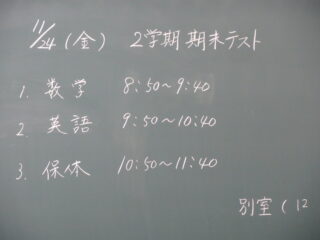 11/24(金) 2学期 期末テスト
1. 数学 8:50～9:40
2. 英語 9:50～10:40
3. 保体 10:50～11:40
別室 (12